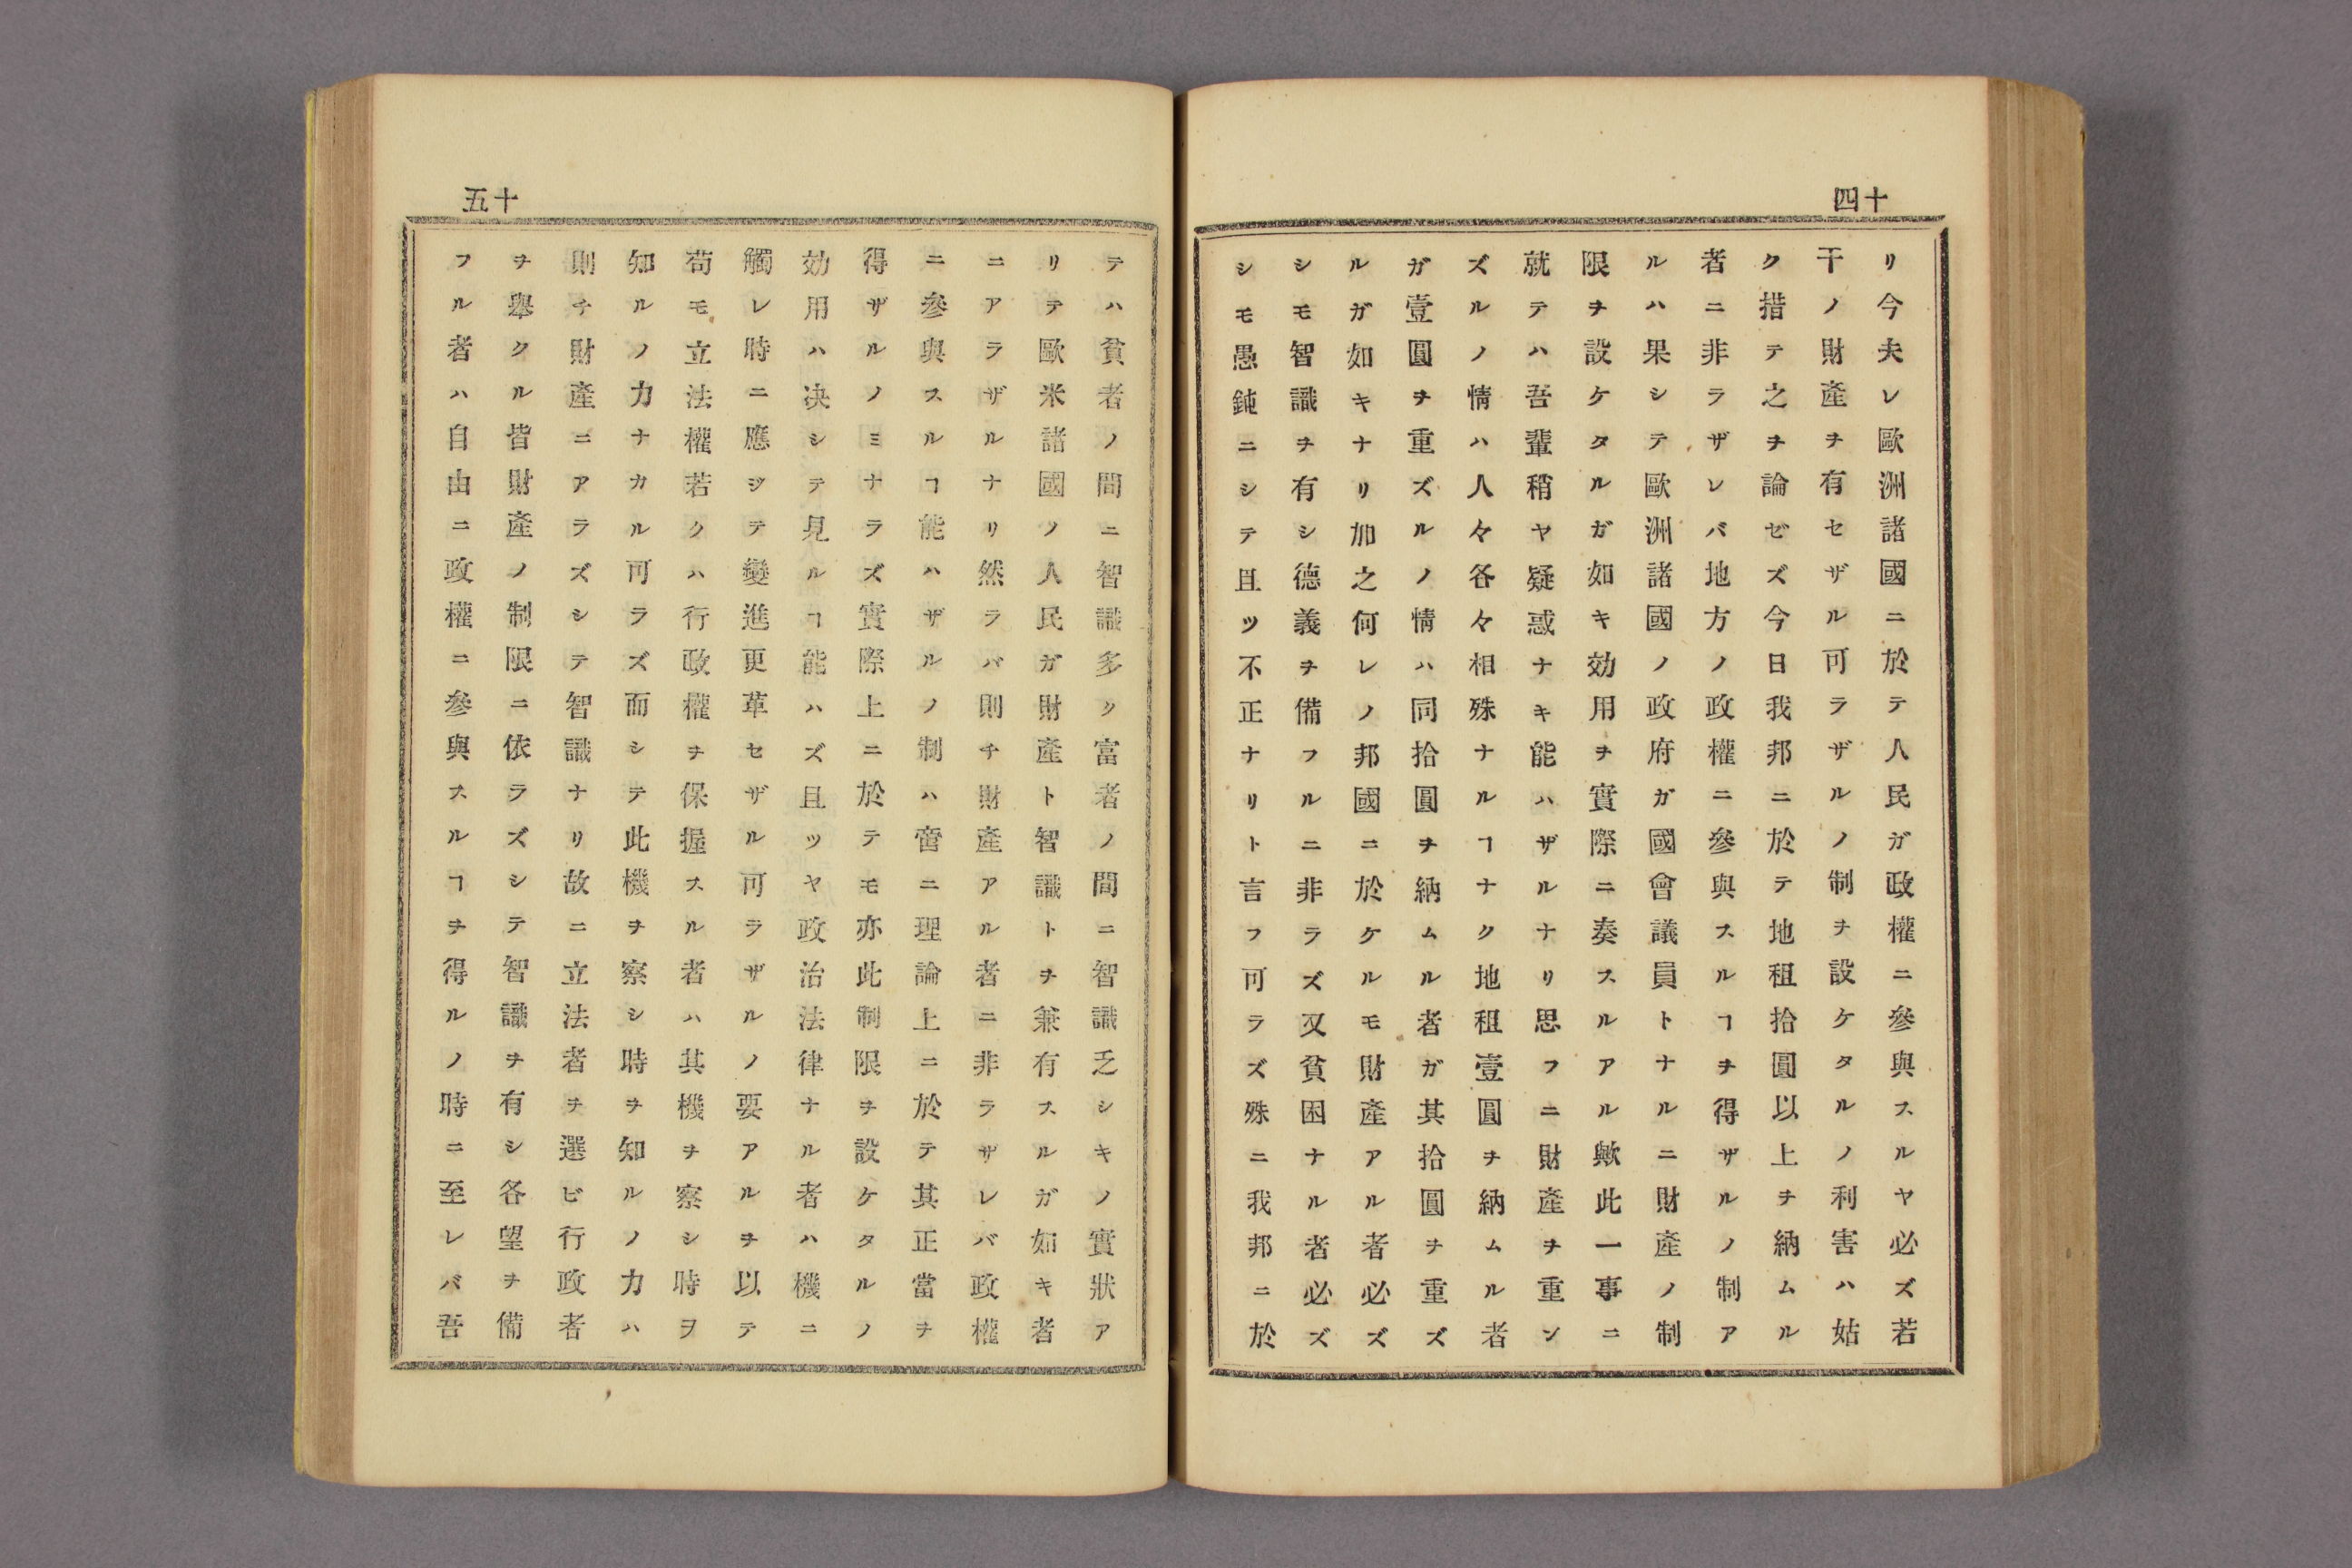 四十
リ今夫レ歐洲諸國ニ於テ人民ガ政權ニ參與スルヤ必ズ若
干ノ財產ヲ有セザル可ラザルノ制ヲ設ケタルノ利害ハ姑
ク措テ之ヲ論ゼズ今日我邦ニ於テ地租拾圓以上ヲ納ムル
者ニ非ラザレバ地方ノ政權ニ參與スルヿヲ得ザルノ制ア
ルハ果シテ歐洲諸國ノ政府ガ國會議員トナルニ財產ノ制
限ヲ設ケタルガ如キ効用ヲ實際ニ奏スルアル歟此一事ニ
就テハ吾輩稍ヤ疑惑ナキ能ハザルナリ思フニ財產ヲ重ン
ズルノ情ハ人々各々相殊ナルヿナク地租壹圓ヲ納ムル者
ガ壹圓ヲ重ズルノ情ハ同拾圓ヲ納ムル者ガ其拾圓ヲ重ズ
ルガ如キナリ加之何レノ邦國ニ於ケルモ財產アル者必ズ
シモ智識ヲ有シ德義ヲ備フルニ非ラズ又貧困ナル者必ズ
シモ愚鈍ニシテ且ツ不正ナリト言フ可ラズ殊ニ我邦ニ於
五十
テハ貧者ノ間ニ智識多ク富者ノ間ニ智識乏シキノ實狀ア
リテ歐米諸國ノ人民ガ財產ト智識トヲ兼有スルガ如キ者
ニアラザルナリ然ラバ則チ財產アル者ニ非ラザレバ政權
ニ參與スルヿ能ハザルノ制ハ啻ニ理論上ニ於テ其正當ヲ
得ザルノミナラズ實際上ニ於テモ亦此制限ヲ設ケタルノ
効用ハ决シテ見ルヿ能ハズ且ツヤ政治法律ナル者ハ機ニ
觸レ時ニ應ジテ變進更革セザル可ラザルノ要アルヲ以テ
苟モ立法權若クハ行政權ヲ保握スル者ハ其機ヲ察シ時ヲ
知ルノ力ナカル可ラズ而シテ此機ヲ察シ時ヲ知ルノ力ハ
則チ財產ニアラズシテ智識ナリ故ニ立法者ヲ選ビ行政者
ヲ擧クル皆財產ノ制限ニ依ラズシテ智識ヲ有シ各望ヲ備
フル者ハ自由ニ政權ニ參與スルヿヲ得ルノ時ニ至レバ吾